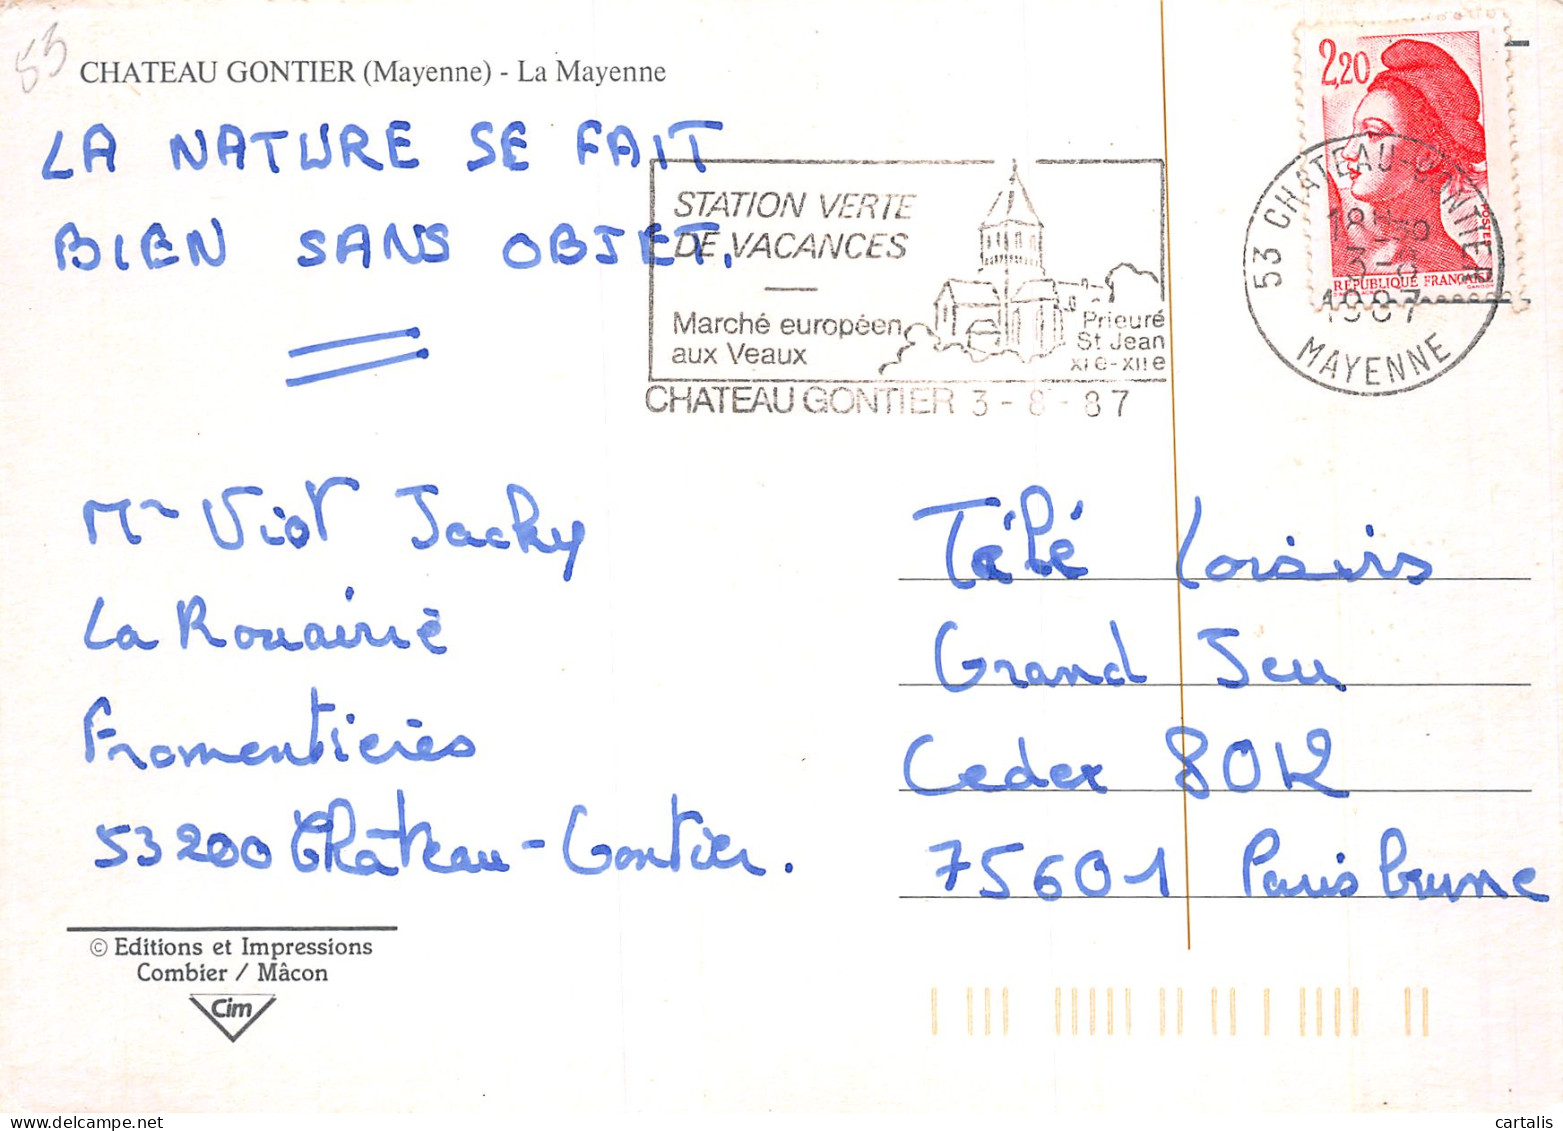 53
CHATEAU GONTIER (Mayenne) - La Mayenne
LA NATURE SE FAIT
BIEN SANS OBJET.
STATION VERTE
DE VACANCES
Marché européen
aux Veaux
Prieuré
St Jean
XIe-XIIe
CHATEAU GONTIER 3-8-87
2,20
POSTES
REPUBLIQUE FRANÇAISE
53 CHATEAU-GONTIER
18H30
3-8
1987
MAYENNE
Mr Viot Jacky
La Rouairie
Fromentières
53200 Château-Gontier.
Télé Loisirs
Grand Jeu
Cedex 8012
75601 Paris brune
© Editions et Impressions
Combier / Mâcon
Cim
cartalis